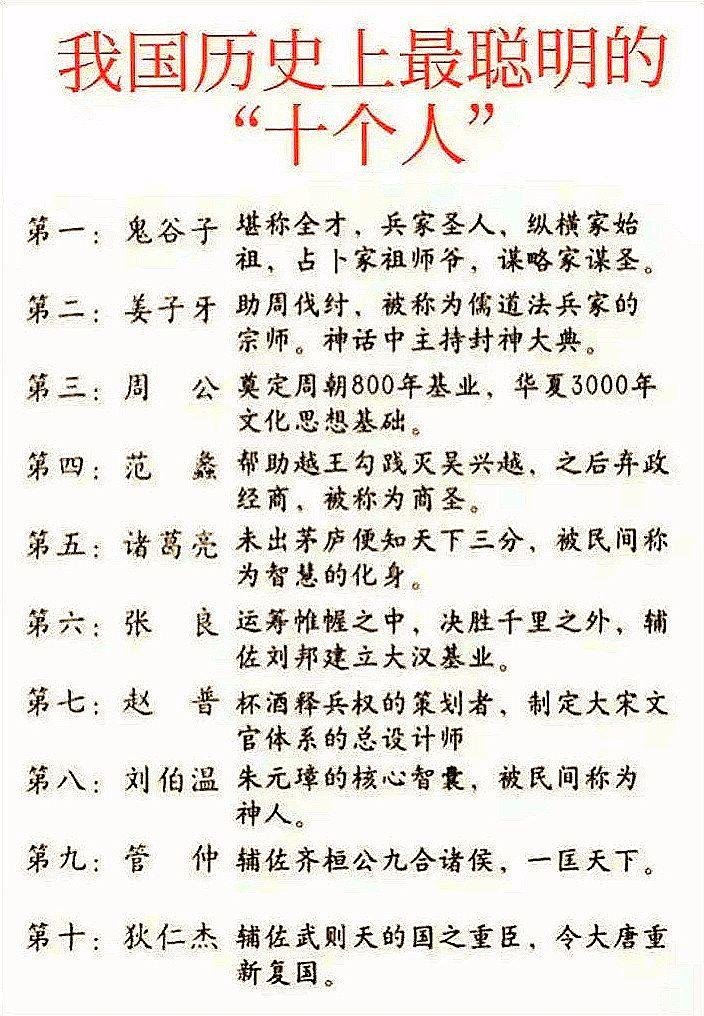 我国历史上最聪明的
“十个人”
第一：鬼谷子 堪称全才，兵家圣人，纵横家始
祖，占卜家祖师爷，谋略家谋圣。
第二：姜子牙 助周伐纣，被称为儒道法兵家的
宗师。神话中主持封神大典。
第三：周 公 奠定周朝800年基业，华夏3000年
文化思想基础。
第四：范 蠡 帮助越王勾践灭吴兴越，之后弃政
经商，被称为商圣。
第五：诸葛亮 未出茅庐便知天下三分，被民间称
为智慧的化身。
第六：张 良 运筹帷幄之中，决胜千里之外，辅
佐刘邦建立大汉基业。
第七：赵 普 杯酒释兵权的策划者，制定大宋文
官体系的总设计师
第八：刘伯温 朱元璋的核心智囊，被民间称为
神人。
第九：管 仲 辅佐齐桓公九合诸侯，一匡天下。
第十：狄仁杰 辅佐武则天的国之重臣，令大唐重
新复国。